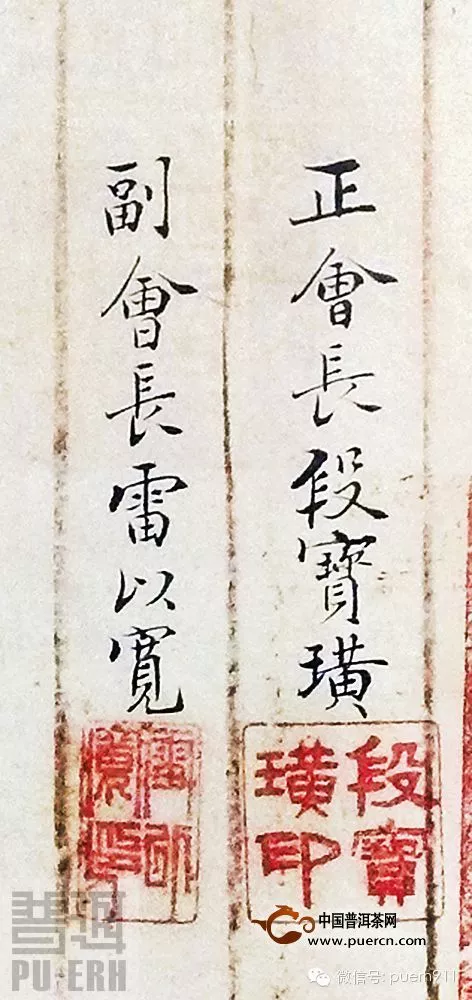 正會長段寶璜
副會長雷以寬
段寶
璜印
中国普洱茶网
www.puercn.com
普洱
PU-ERH
微信号: puern911